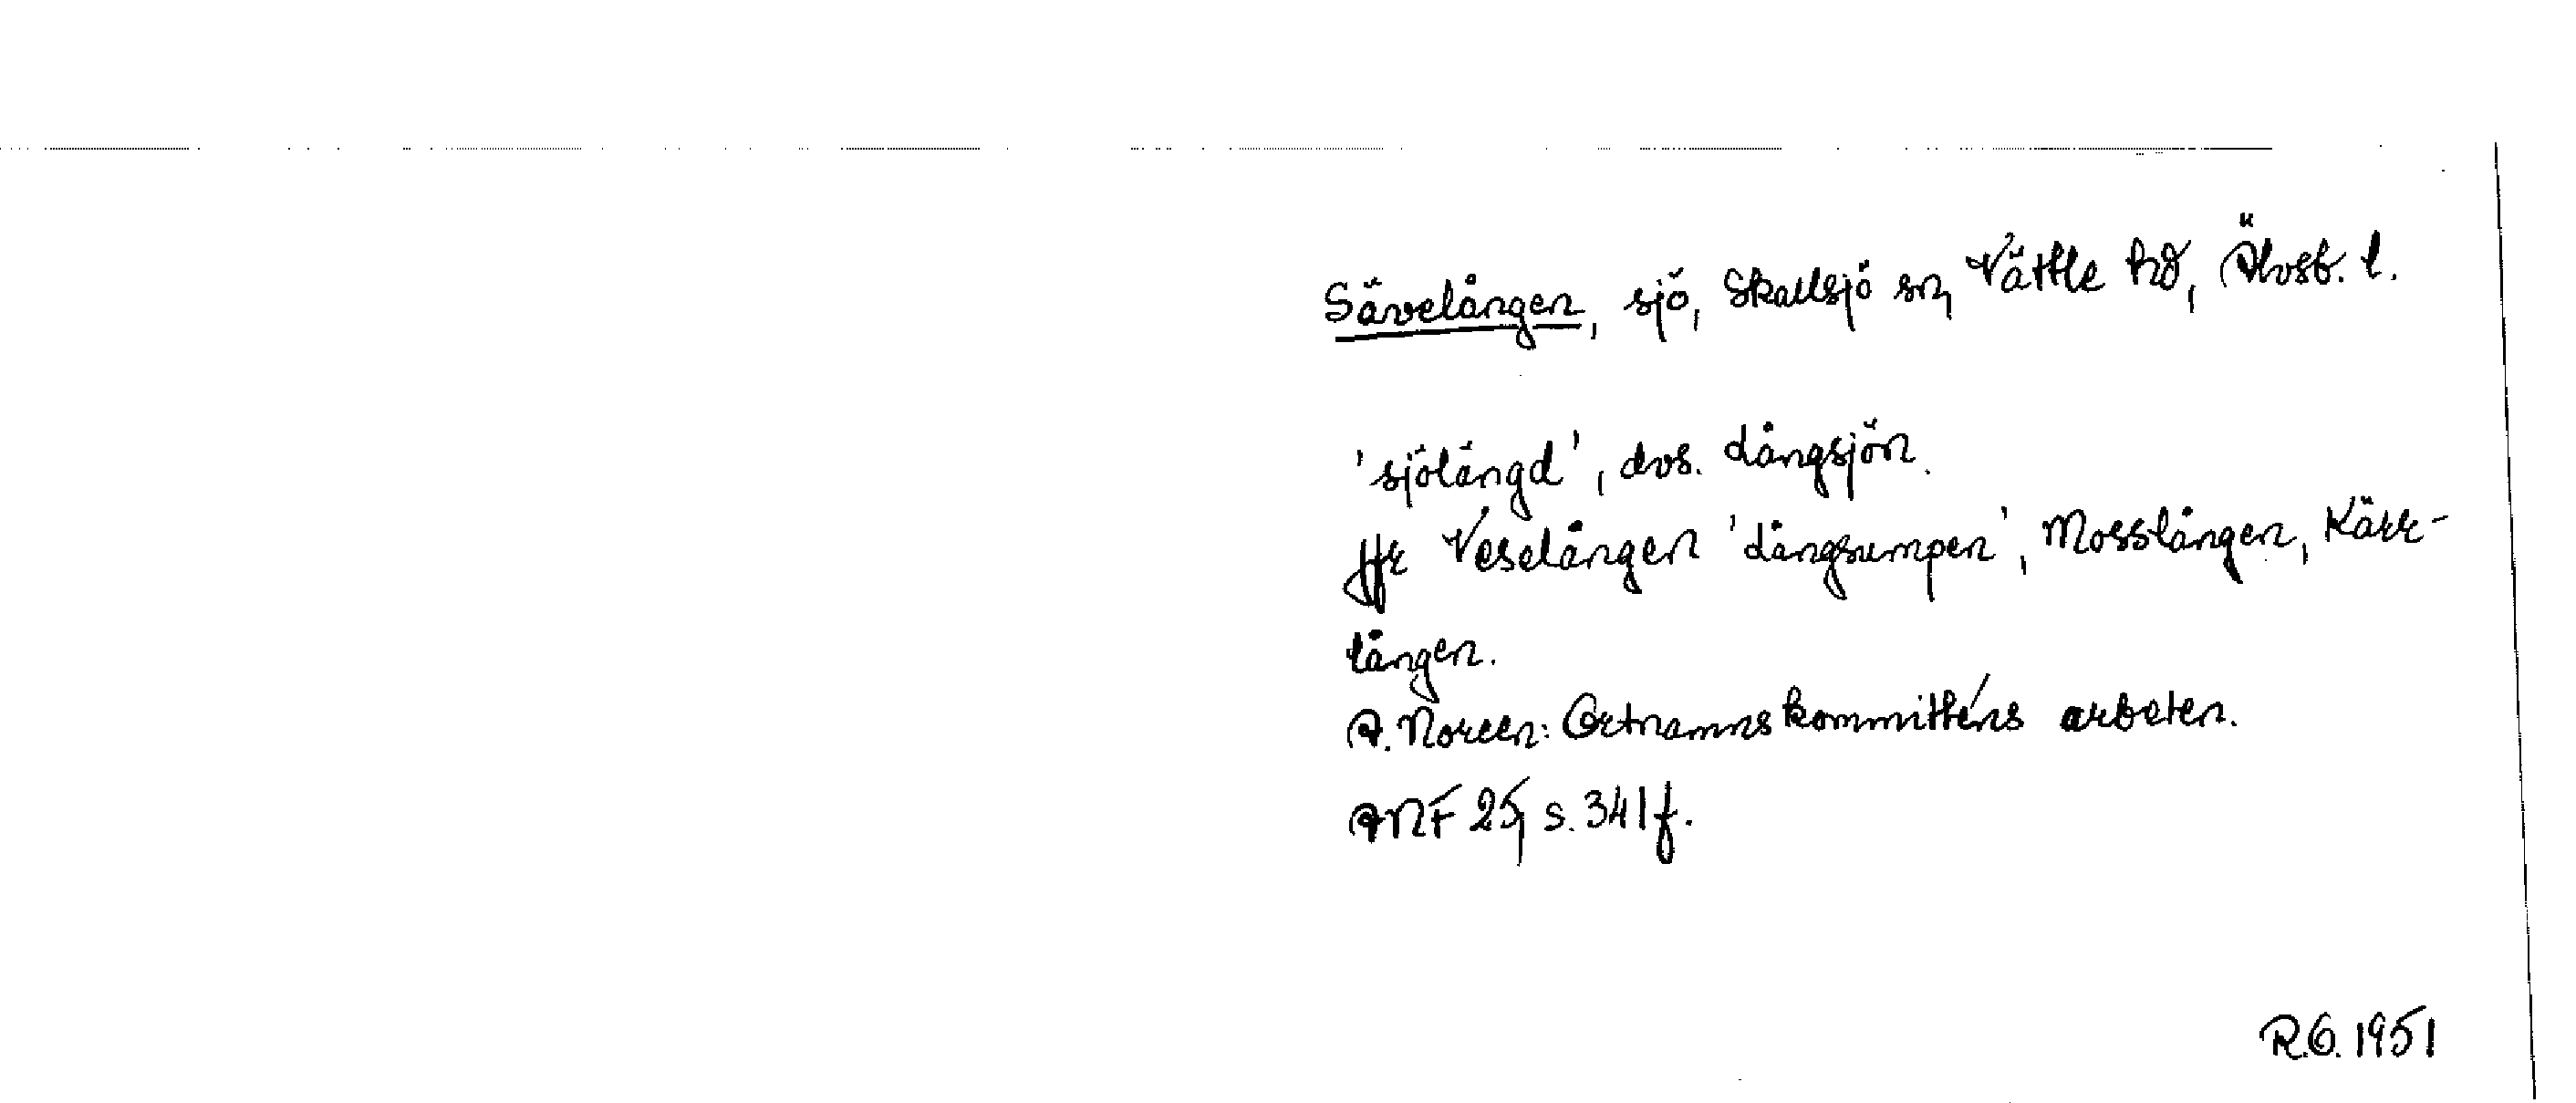 Sävelången, sjö, Skallsjö sn, Vättle hd, Älvsb. l.
'sjölängd', dvs. Långsjön.
Jfr Veselången 'Långsumpen', Mosslången, Kärr-
lången.
A. Noreen: Ortnamnskommitténs arbeten.
ANF 25, s. 341 f.
R.O. 1951